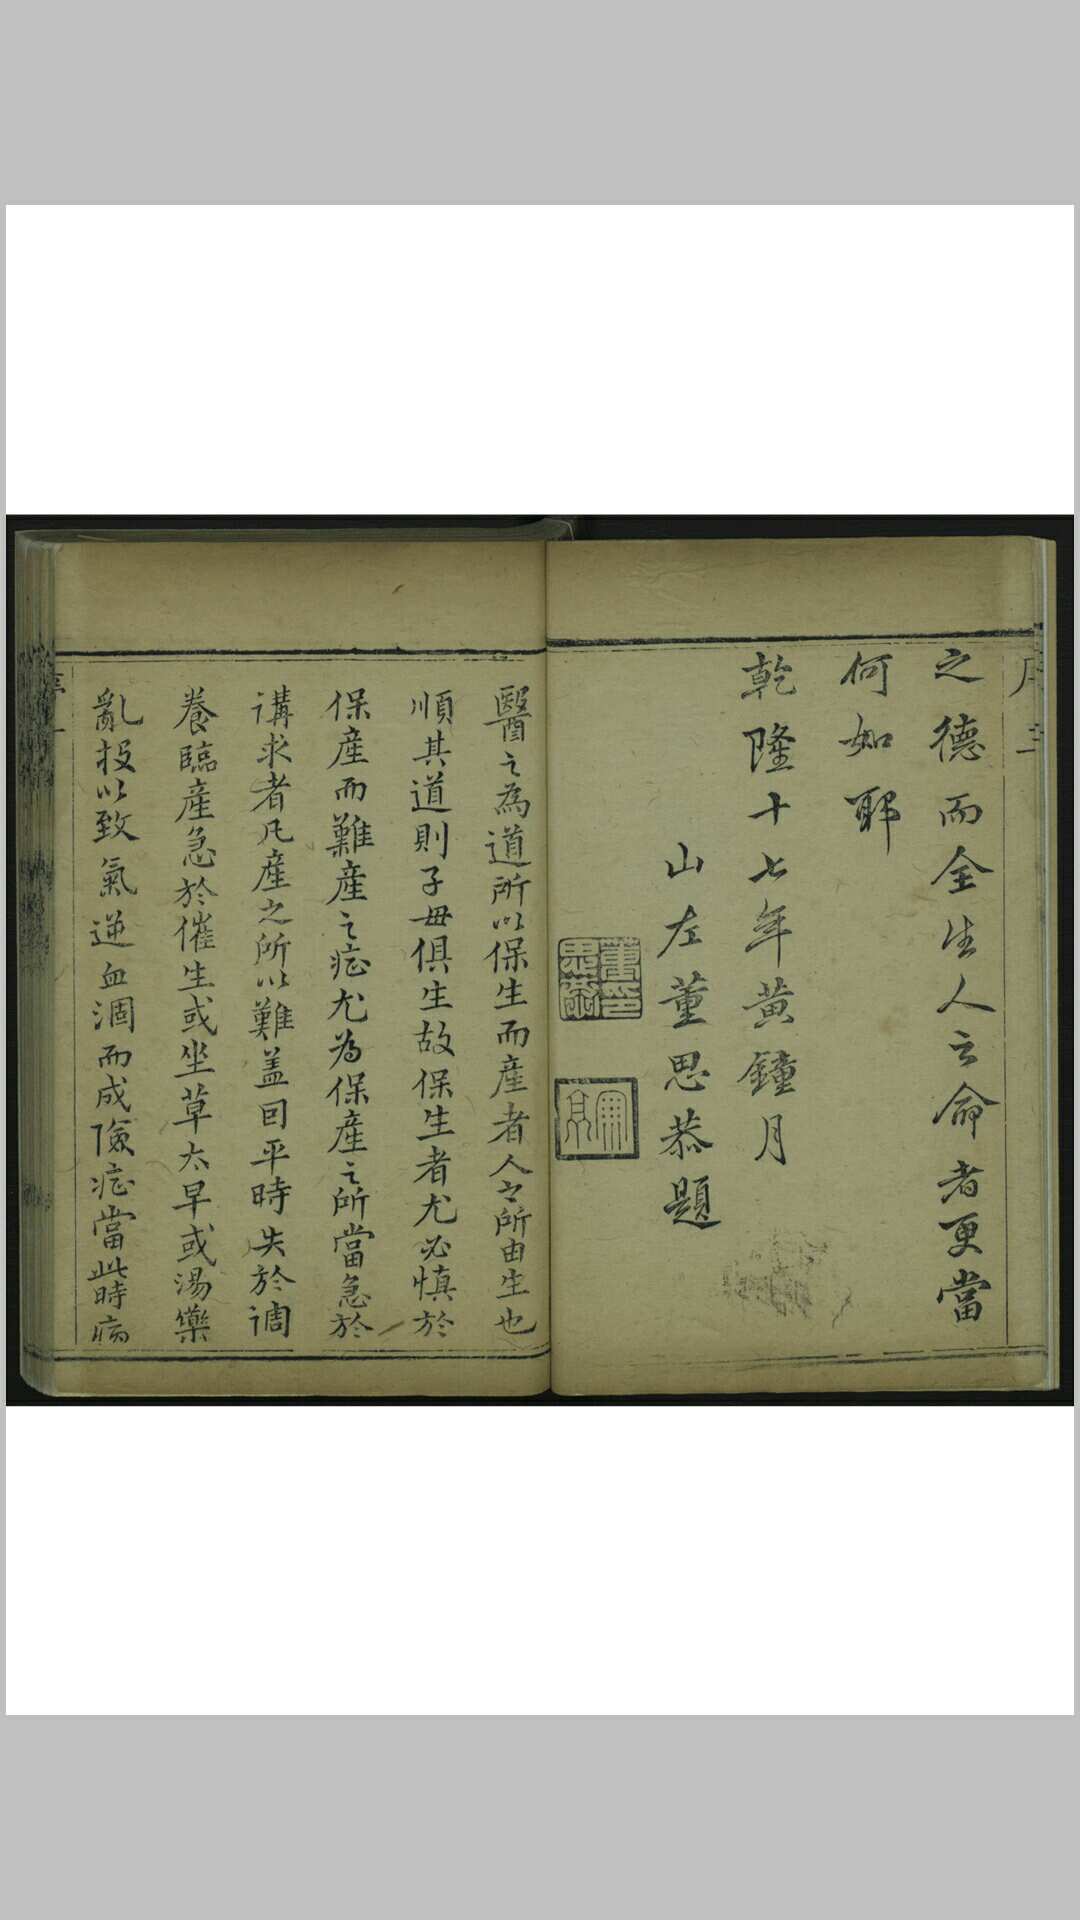 之德而全生人之命者更當
何如耶
乾隆十七年黄鐘月
山左董思恭題
董印思恭
醫之為道所以保生而産者人之所由生也
順其道則子毋俱生故保生者尤必慎於
保産而難産之症尤為保産之所當急於
講求者凡産之所以難盖囙平時失於调
養臨産急於催生或坐草太早或湯藥
亂投以致氣逆血涸而成險症當此時病